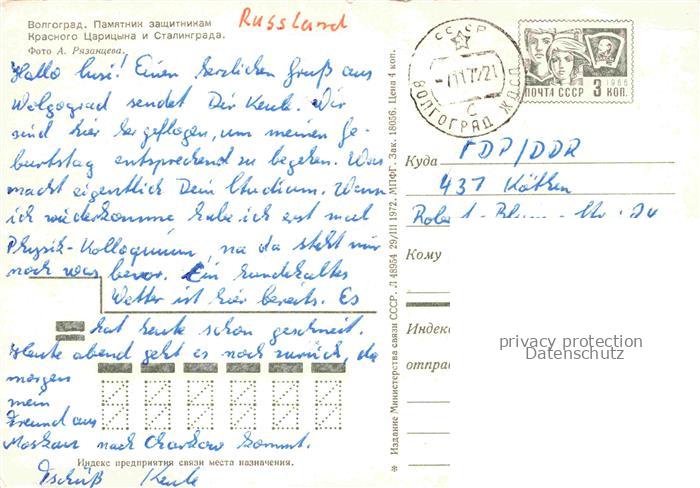 Волгоград. Памятник защитникам
Красного Царицына и Сталинграда.
Фото А. Рязанцева.
Russland
Hallo Lusi! Einen herzlichen Gruß aus
Wolgograd sendet Dir Keule. Wir
sind hier hergeflogen, um meinen Ge-
burtstag entsprechend zu begehen. Was
macht eigentlich Dein Studium. Wenn
ich wiederkomme habe ich erst mal
Physik-Kolloquium, na da steht mir
noch was bevor. Ein hundekaltes
Wetter ist hier bereits. Es
hat heute schon geschneit.
Heute abend geht es noch zurück, da
morgen
mein
Freund aus
Moskau nach Charkow kommt.
Tschüß Keule
Индекс предприятия связи места назначения.
* Издание Министерства связи СССР. Л 48954 29/III 1972. МПФГ. Зак. 18056. Цена 4 коп.
СССР
ВОЛГОГРАД ЖДПП
С
1966
ПОЧТА СССР 3 КОП.
Куда ГДР/DDR
437 Köthen
Кому
Индекс
отправ
privacy protection
Datenschutz